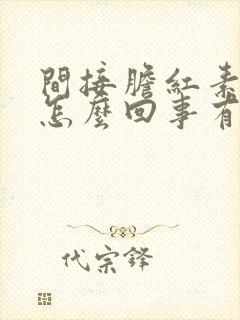 間接膽紅素
怎麼回事有
代宗鋒